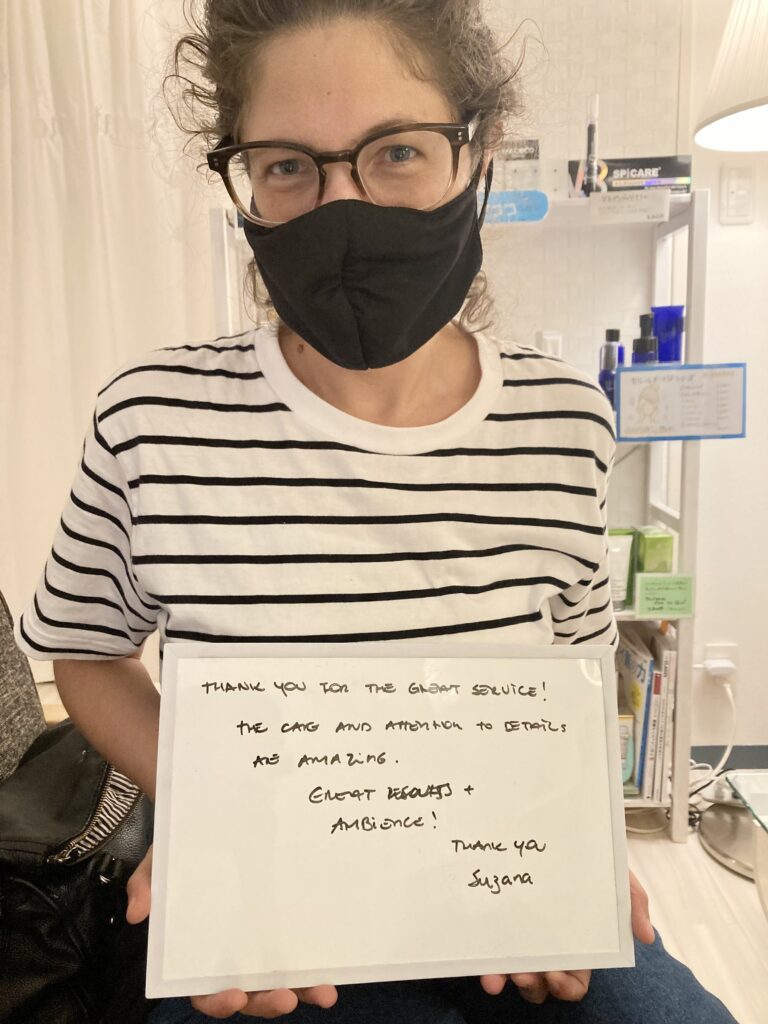 SPICARE
THANK YOU FOR THE GREAT SERVICE!
THE CARE AND ATTENTION TO DETAILS
ARE AMAZING.
GREAT RESULTS +
AMBIENCE!
THANK YOU
Suzana